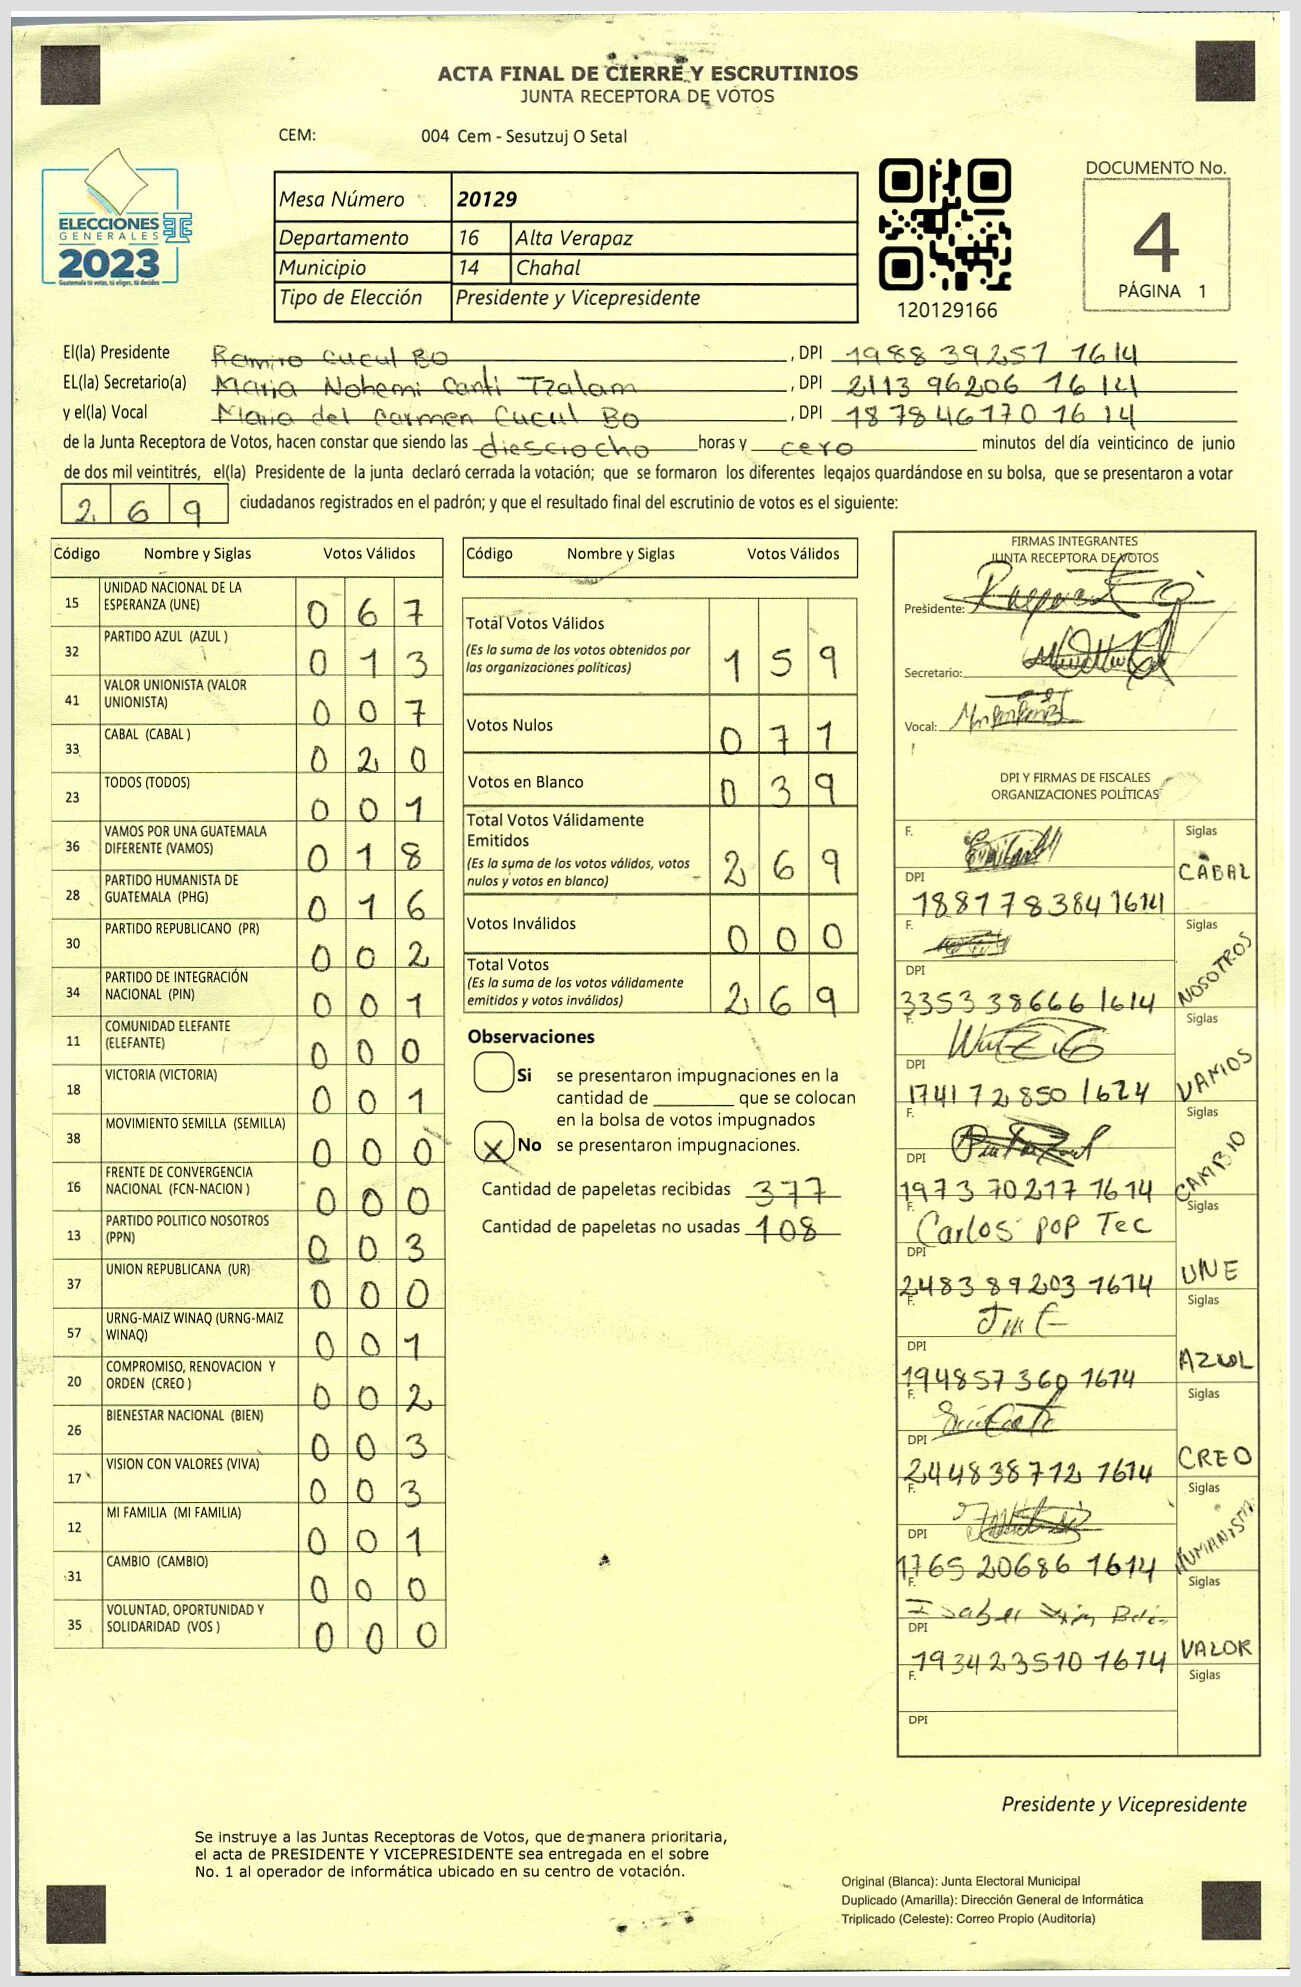 ACTA FINAL DE CIERRE Y ESCRUTINIOS
JUNTA RECEPTORA DE VOTOS
CEM: 004 Cem - Sesutzuj O Setal
DOCUMENTO No.
4
PÁGINA 1
ELECCIONES
GENERALES
2023
Guatemala tú votas, tú eliges, tú decides
Mesa Número 20129
Departamento 16 Alta Verapaz
Municipio 14 Chahal
Tipo de Elección Presidente y Vicepresidente
120129166
El(la) Presidente Ramiro Cucul Bo , DPI 1988 39251 1614
EL(la) Secretario(a) Maria Nohemi Canti Tzalam , DPI 2113 96206 1614
y el(la) Vocal Maria del Carmen Cucul Bo , DPI 1878 46170 1614
de la Junta Receptora de Votos, hacen constar que siendo las diesciocho horas y cero minutos del día veinticinco de junio
de dos mil veintitrés, el(la) Presidente de la junta declaró cerrada la votación; que se formaron los diferentes legajos guardándose en su bolsa, que se presentaron a votar
2 6 9 ciudadanos registrados en el padrón; y que el resultado final del escrutinio de votos es el siguiente:
Código Nombre y Siglas Votos Válidos
15 UNIDAD NACIONAL DE LA
ESPERANZA (UNE) 0 6 7
32 PARTIDO AZUL (AZUL ) 0 1 3
41 VALOR UNIONISTA (VALOR
UNIONISTA) 0 0 7
33 CABAL (CABAL ) 0 2 0
23 TODOS (TODOS) 0 0 1
36 VAMOS POR UNA GUATEMALA
DIFERENTE (VAMOS) 0 1 8
28 PARTIDO HUMANISTA DE
GUATEMALA (PHG) 0 1 6
30 PARTIDO REPUBLICANO (PR) 0 0 2
34 PARTIDO DE INTEGRACIÓN
NACIONAL (PIN) 0 0 1
11 COMUNIDAD ELEFANTE
(ELEFANTE) 0 0 0
18 VICTORIA (VICTORIA) 0 0 1
38 MOVIMIENTO SEMILLA (SEMILLA) 0 0 0
16 FRENTE DE CONVERGENCIA
NACIONAL (FCN-NACION ) 0 0 0
13 PARTIDO POLITICO NOSOTROS
(PPN) 0 0 3
37 UNION REPUBLICANA (UR) 0 0 0
57 URNG-MAIZ WINAQ (URNG-MAIZ
WINAQ) 0 0 1
20 COMPROMISO, RENOVACION Y
ORDEN (CREO ) 0 0 2
26 BIENESTAR NACIONAL (BIEN) 0 0 3
17 VISION CON VALORES (VIVA) 0 0 3
12 MI FAMILIA (MI FAMILIA) 0 0 1
31 CAMBIO (CAMBIO) 0 0 0
35 VOLUNTAD, OPORTUNIDAD Y
SOLIDARIDAD (VOS ) 0 0 0
Código Nombre y Siglas Votos Válidos
Total Votos Válidos
(Es la suma de los votos obtenidos por
las organizaciones políticas) 1 5 9
Votos Nulos 0 7 1
Votos en Blanco 0 3 9
Total Votos Válidamente
Emitidos
(Es la suma de los votos válidos, votos
nulos y votos en blanco) 2 6 9
Votos Inválidos 0 0 0
Total Votos
(Es la suma de los votos válidamente
emitidos y votos inválidos) 2 6 9
Observaciones
Si se presentaron impugnaciones en la
cantidad de ________ que se colocan
en la bolsa de votos impugnados
X No se presentaron impugnaciones.
Cantidad de papeletas recibidas 377
Cantidad de papeletas no usadas 108
FIRMAS INTEGRANTES
JUNTA RECEPTORA DE VOTOS
Presidente:
Secretario:
Vocal:
DPI Y FIRMAS DE FISCALES
ORGANIZACIONES POLÍTICAS
F. Siglas
CABAL
DPI
1881 78384 1614
F. Siglas
NOSOTROS
DPI
3353 38666 1614
F. Siglas
VAMOS
DPI
1741 72850 1624
F. Siglas
CAMBIO
DPI
1973 70217 1614
F. Siglas
Carlos pop Tec
UNE
DPI
2483 89203 1614
F. Siglas
AZUL
DPI
1948 57360 1614
F. Siglas
CREO
DPI
2448 38712 1614
F. Siglas
HUMANISTA
DPI
1765 20686 1614
F. Siglas
VALOR
DPI
1934 23510 1614
F. Siglas
DPI
Presidente y Vicepresidente
Se instruye a las Juntas Receptoras de Votos, que de manera prioritaria,
el acta de PRESIDENTE Y VICEPRESIDENTE sea entregada en el sobre
No. 1 al operador de informática ubicado en su centro de votación.
Original (Blanca): Junta Electoral Municipal
Duplicado (Amarilla): Dirección General de Informática
Triplicado (Celeste): Correo Propio (Auditoría)